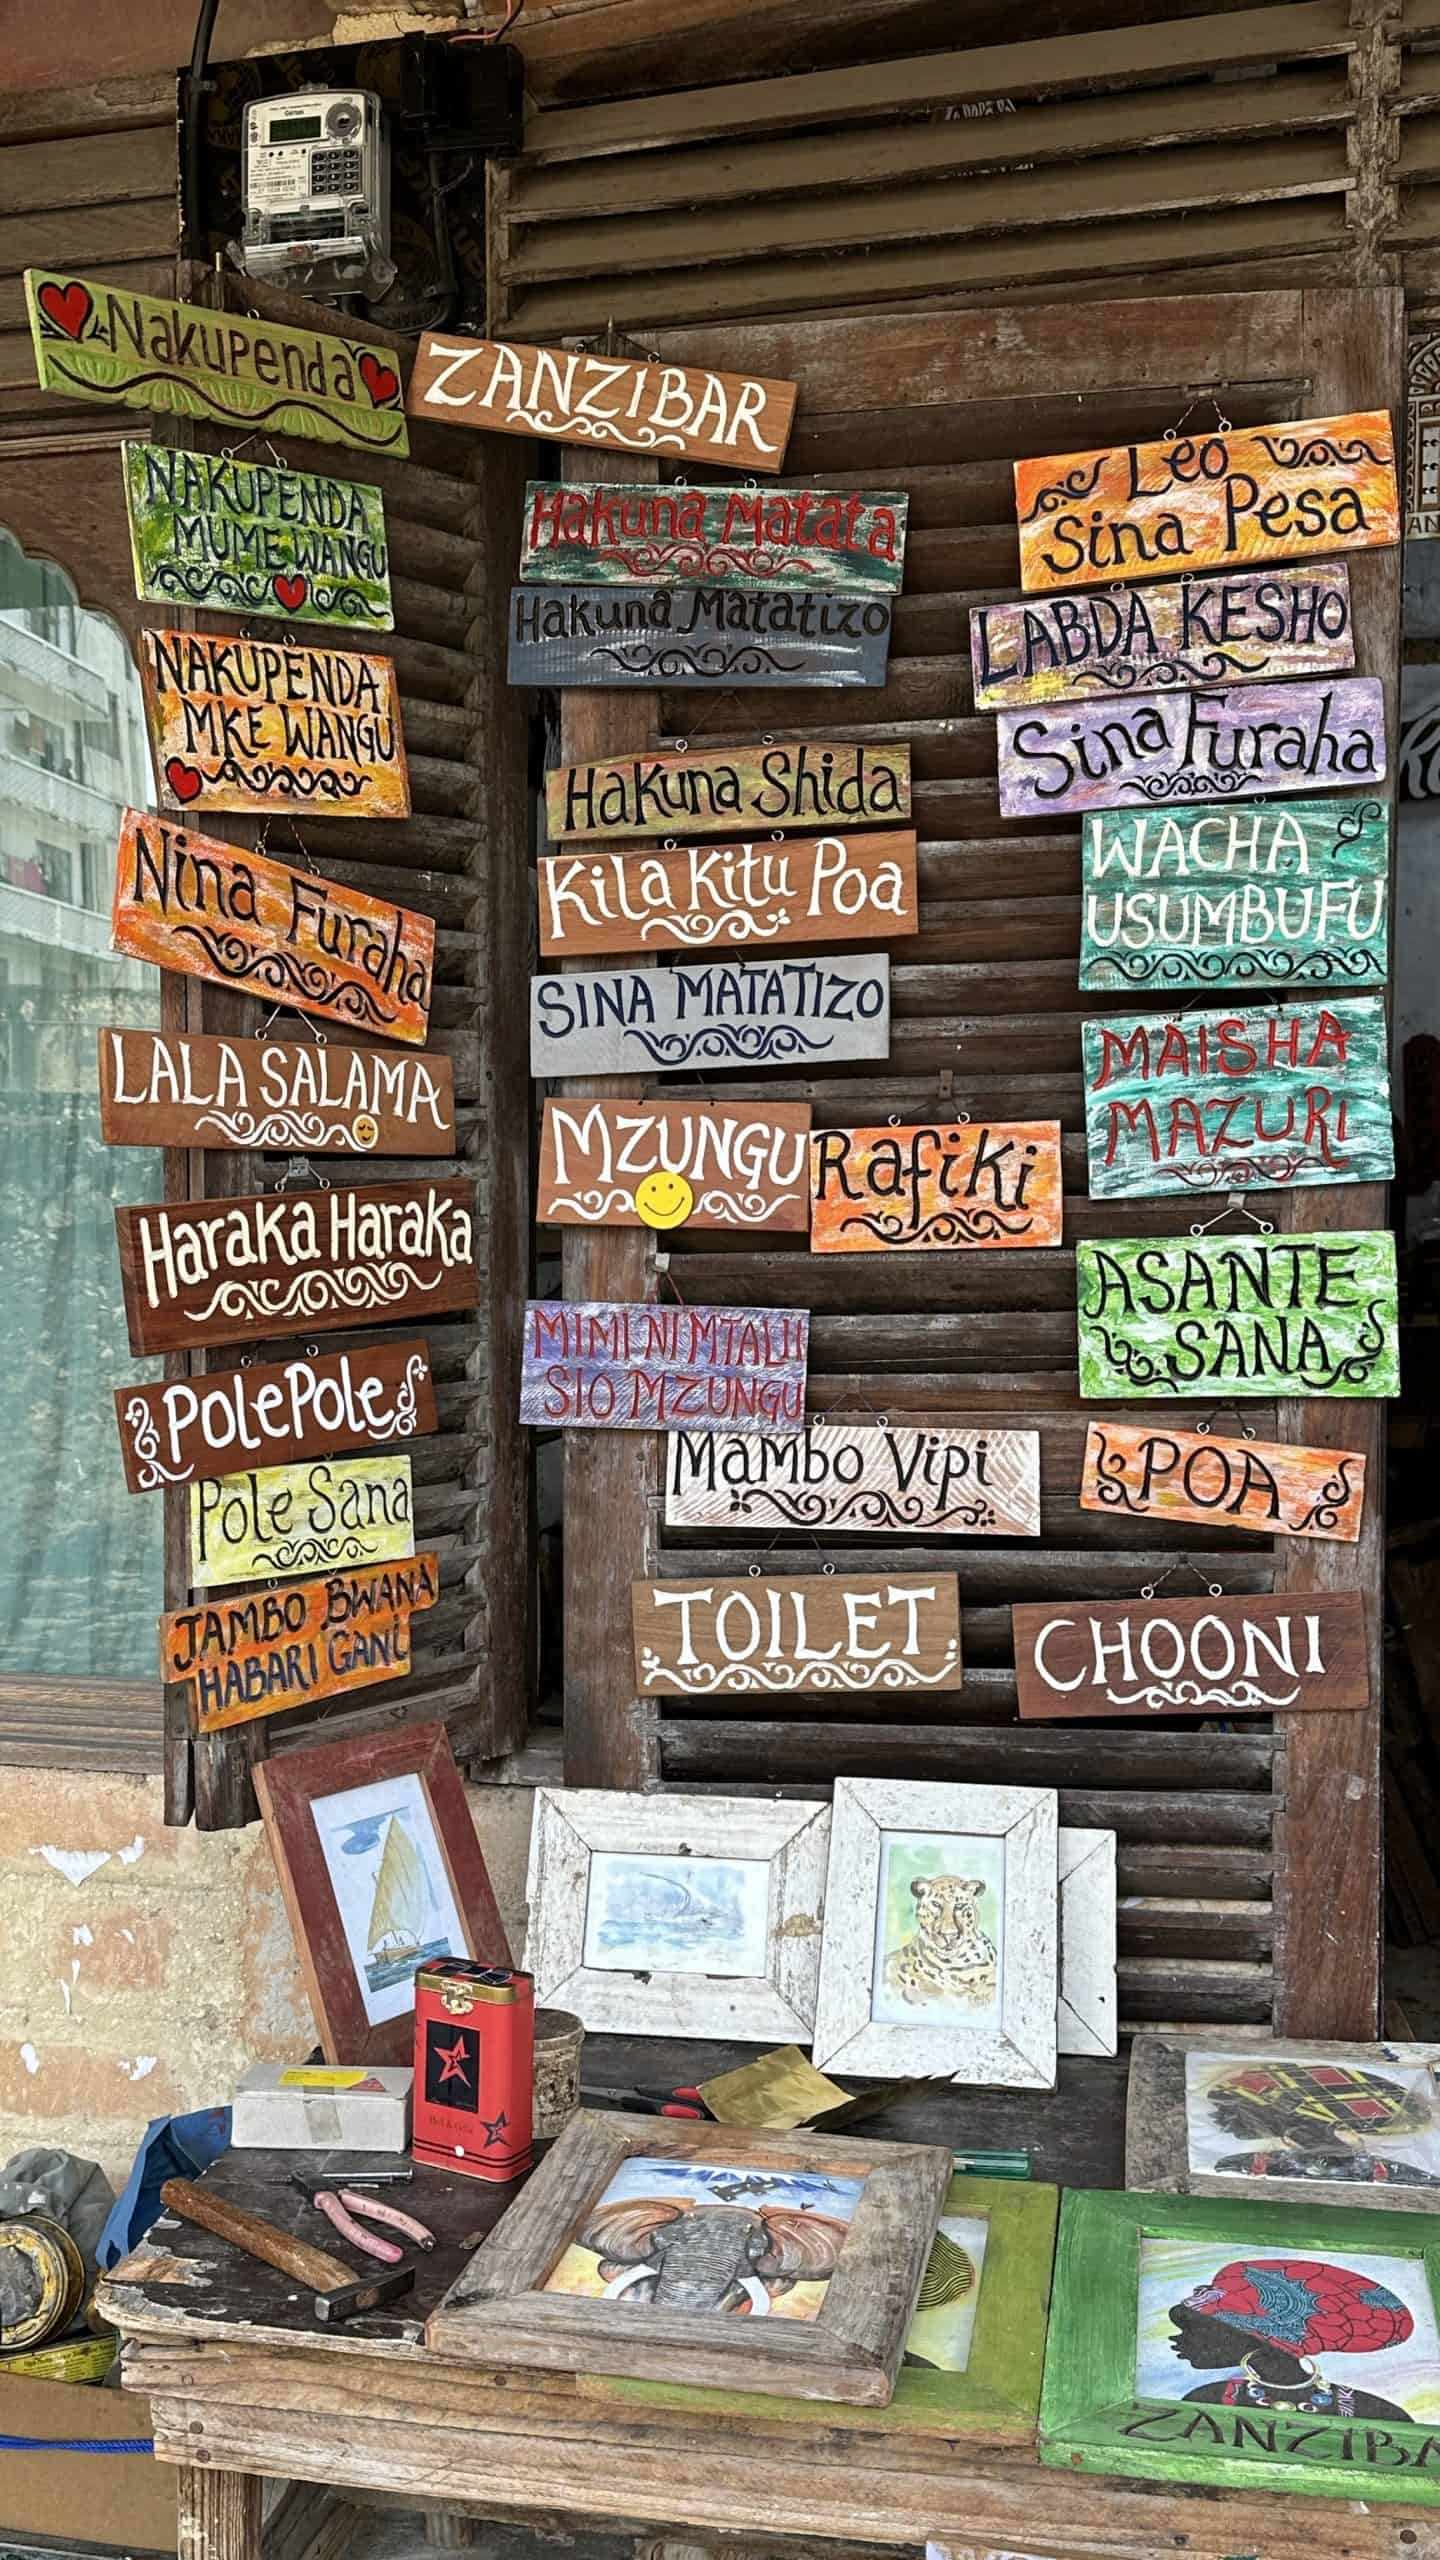 Nakupenda
NAKUPENDA
MUME WANGU
NAKUPENDA
MKE WANGU
Nina Furaha
LALA SALAMA
Haraka Haraka
PolePole
Pole Sana
JAMBO BWANA
HABARI GANI
ZANZIBAR
Hakuna Matata
Hakuna Matatizo
Hakuna Shida
Kila Kitu Poa
SINA MATATIZO
MZUNGU
Rafiki
MIMI NI MTALII
SIO MZUNGU
Mambo Vipi
TOILET
Leo
Sina Pesa
LABDA KESHO
Sina Furaha
WACHA
USUMBUFU
MAISHA
MAZURI
ASANTE
SANA
POA
CHOONI
ZANZIBA